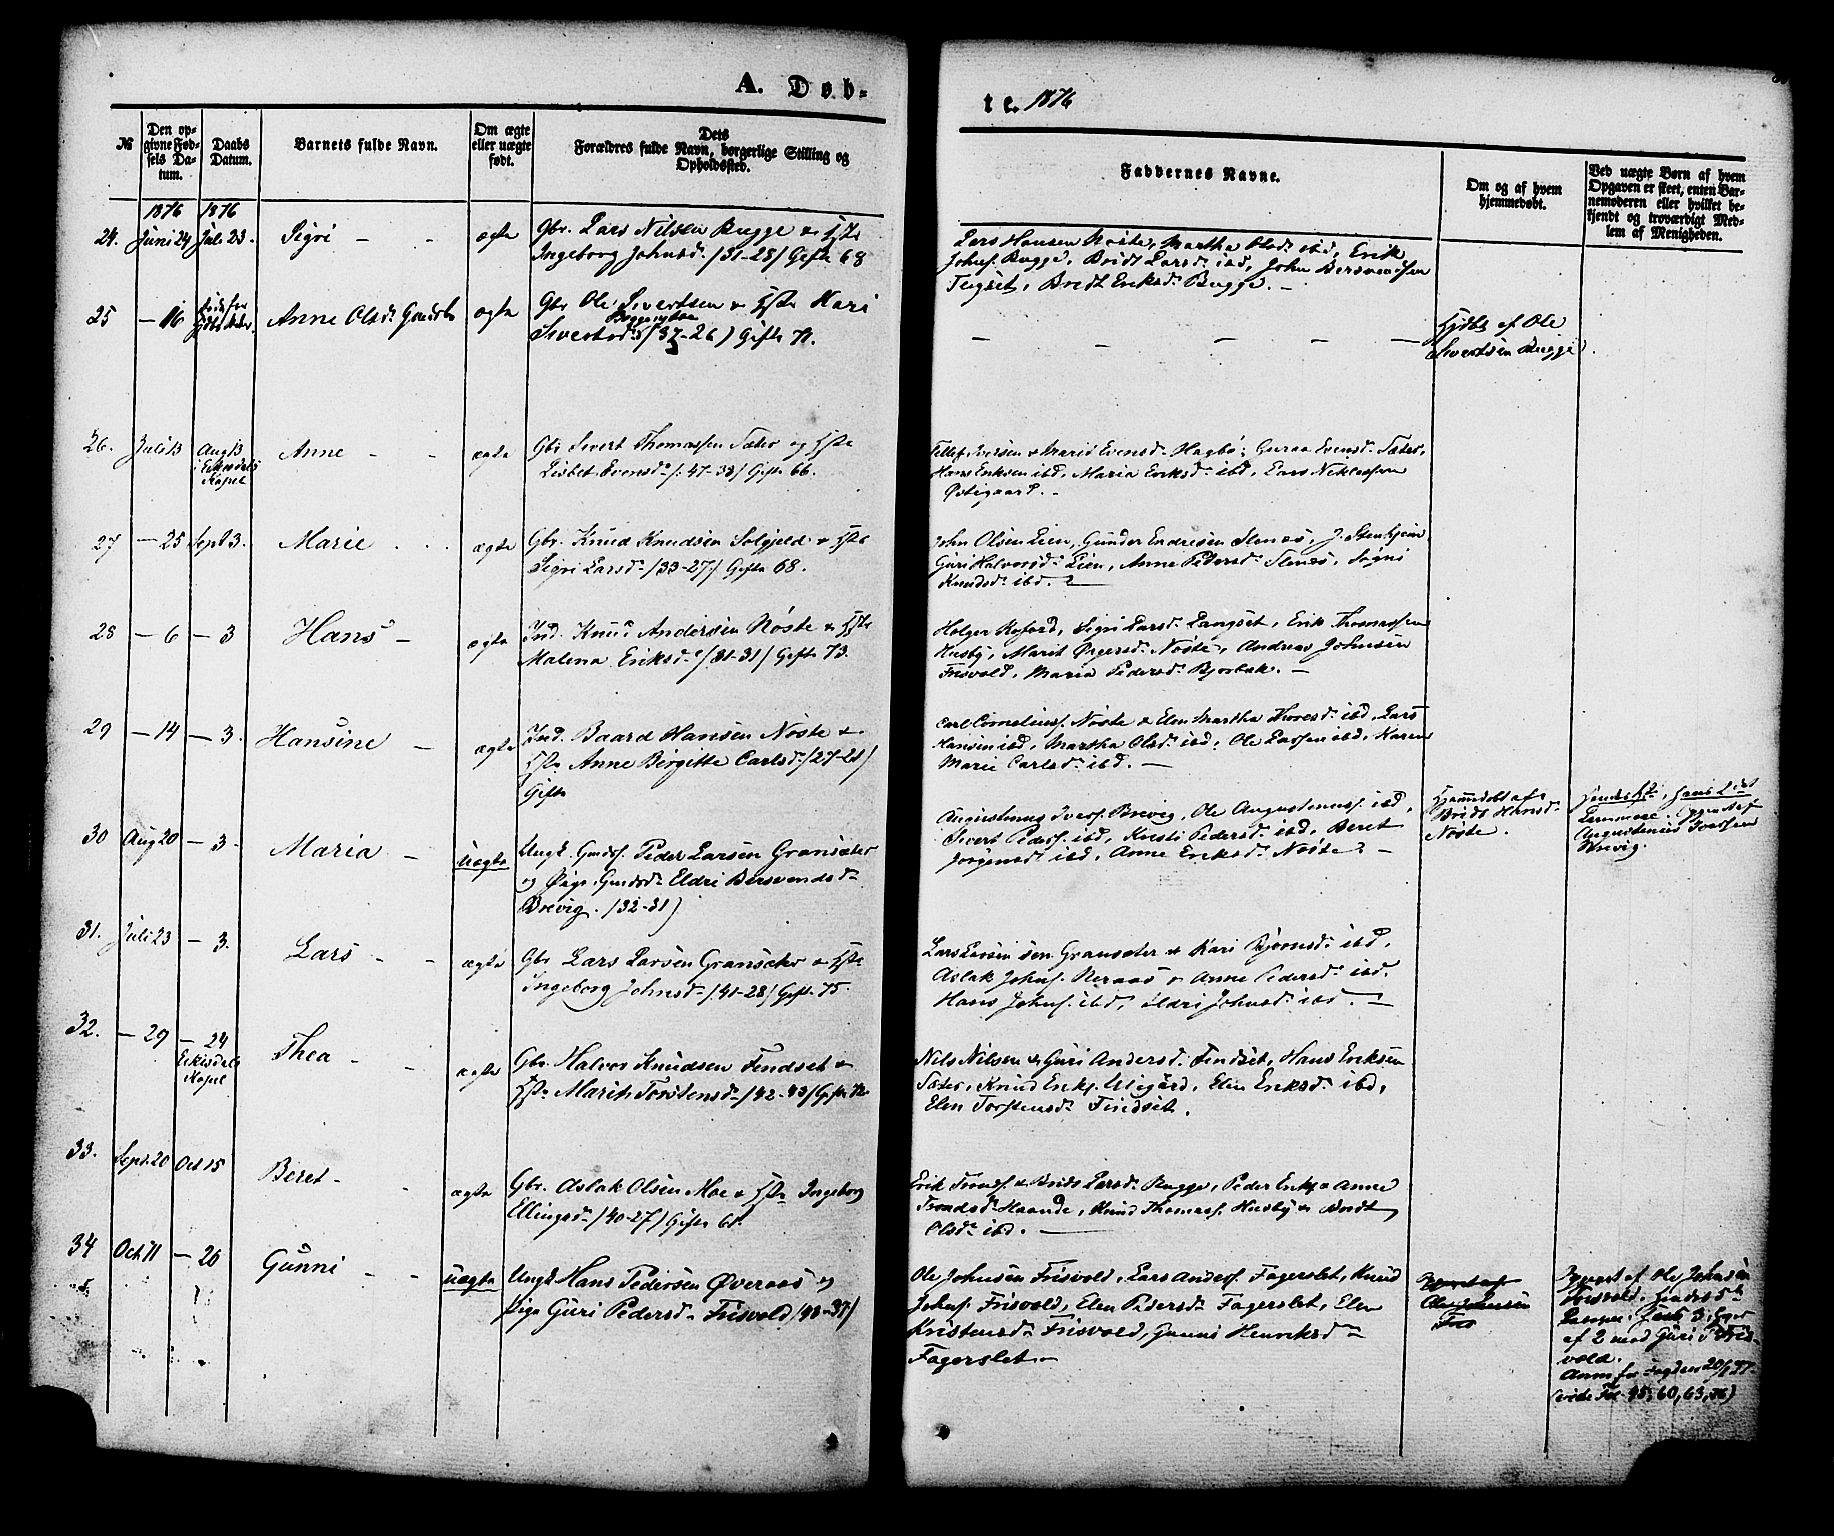 A. Døb-
te. 1876
№
Den op-
givne Fød-
sels Da-
tum.
Daabs
Datum.
Barnets fulde Navn.
Om ægte
eller uægte
født.
Dets
Forældres fulde Navn, borgerlige Stilling og
Opholdssted.
Faddernes Navne.
Om og af hvem
hjemmedøbt.
Ved uægte Børn af hvem
Opgaven er skeet, enten Bar-
nemoderen eller hvilket be-
kjendt og troværdigt Med-
lem af Menigheden.
1876 1876
24. Juni 24 Juli 23. Sigri - - ægte
Gbr. Lars Nilsen Bugge & Hst
Ingeborg Johnsd. /31-28/ Gift 68
Lars Hansen Nøste, Martha Olsd. ibd, Erik
Johns. Bugge, Bridt Larsd. ibd, John Bersvendsen
Tugset, Bredt Eriksd. Bugge. -
25 - 16 Anne Olsd. ægte
Gbr Ole Sivertsen & Hst Kari
Buggemyren
Sivertsd. (37-26) Gift 71.
- - - - -
Hjdbt af Ole
Sivertsen Bugge
26. Juli 13 Aug 13
Eikisdals
Kapel
Anne - - ægte
Gbr Sivert Thomassen Sæter og Hst
Lisbet Evensd. /: 47-38/ Gift 66.
Tellef Iversen & Marit Evensd. Hagbø, Guraa Evensd. Sæter,
Hans Eriksen ibd, Maria Eriksd. ibd, Lars Niklassen
Østigaard. -
27 - 25 Sept 3. Marie . . . ægte
Gbr. Knud Knudsen Solgjeld & Hst
Sigri Larsd. /33-27/ Gift 68.
John Olsen Lien, Gunder Endresen Stenes,
Guri Halvorsd. Lien, Anne Pedersd. Stenes, Sigri
Knudsd. ibd.
28 - 6 - 3 Hans - ægte
Ind. Knud Andersen Nøste & Hst
Malena Eriksd. /31-31/ Gift 73.
Holger Koford, Sigri Larsd. Langset, Erik Thomassen
Husby, Marit Ørgersd. Nøste, Andreas Johnsen
Frisvold, Maria Pedersd. Bjorbæk. -
29 - 14 - 3. Hansine - ægte
Ind. Baard Hansen Nøste &
Hst Anne Birgitte Carlsd. /27-21/
Gift
Carl Cornelius. Nøste & Elen Martha Thoresd. ibd, Lars
Hansen ibd, Martha Olsd. ibd, Ole Larsen ibd, Karen
Marie Carlsd. ibd. -
30 Aug 20 - 3. Maria - uægte
Ungk. Gmds. Peder Larsen Gransæter
og Pige Gmdsd. Eldri Bersvendsd.
Brevig. /32-31)
Augustinus Ivers. Brevig, Ole Augustinus. ibd,
Sivert Peders. ibd, Kirsti Pedersd. ibd, Beret
Jørgensd. ibd, Anne Eriksd. Nøste. -
Hjemmedøbt af
Bridt Hansd.
Nøste.
Hendes 1ste, hans 2det
Leiermaal. Opgivet af
Augustinus Iversen
Brevig.
31. Juli 23 - 3. Lars - - ægte
Gbr Lars Larsen Gransæter & Hst
Ingeborg Johnsd. /41-28/ Gift 75.
Lars Larsen sen Gransæter & Kari Bjørnsd. ibd,
Aslak Johns. Neraas & Anne Pedersd. ibd.
Hans Johns. ibd, Eldri Johnsd. ibd. -
32. - 29 - 24
Eikisdals
Kapel
Thea - - ægte
Gbr. Halvor Knudsen Findset &
Hst Marith Torstensd. /42-43/ Gift
Nils Nilsen & Guri Andersd. Findset, Hans Eriksen
Sæter, Knud Eriks. Utigård, Elen Eriksd. ibd,
Elen Torstensd. Findset.
33. Sept. 20 Oct 15 Beret - - ægte
Gbr. Aslak Olsen Moe & Hst Ingeborg
Ellingsd. /40-27) Gift 68.
Erik Tronds. & Bridt Larsd. Bugge, Peder Eriks & Anne
Trondsd. Haande, Knud Thomass. Husby & Bredt
Olsd. ibd. -
34 Oct 11 - 26 Gunni - - uægte
Ungk Hans Pedersen Øveraas og
Pige Guri Pedersd. Frisvold /48-37/
Ole Johnsen Frisvold, Lars Anders. Fagerslet, Knud
Johns. Frisvold, Elen Pedersd. Fagerslet, Elen
Kristensd. Frisvold, Gunni Henriksd.
Fagerslet -
Opgivet af Ole Johnsen
Frisvold. Hendes 5te
Leierm., hans 3, hvor
af 2 med Guri P. Fris-
vold.
(vide Fol 45, 60, 63, 76)